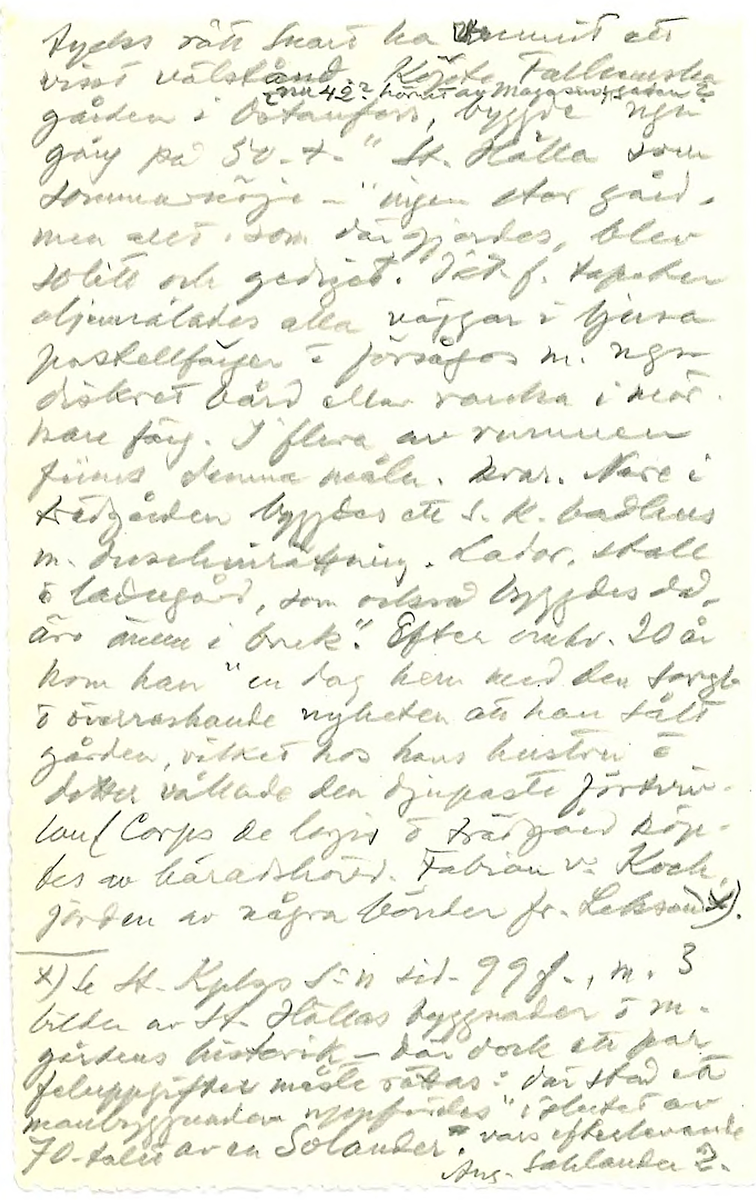 tycks rätt snart ha kommit ett
visst välstånd. Köpte Fallumska
(nu 42? hörnet av Magasinsgatan?
gården i Östanfors, byggde ngn
gång på 50-t. " St. Hälla som
sommarnöje – " ingen stor gård,
men allt, som där gjordes, blev
solitt och gediget. I st. f. tapeter
oljemålades alla väggar i ljusa
pastellfärger o försågos m. ngn
diskret bård eller ranka i mör-
kare färg. I flera av rummen
finns denna måln. kvar. Nere i
trädgården byggdes ett s. k. badhus
m. duschinrättning. Lador, stall
o ladugård, som också byggdes då,
äro ännu i bruk". Efter omkr. 20 år
kom han "en dag hem med den sorgl.
o överraskande nyheten att han sålt
gården, vilket hos hans hustru o
dotter vållade den djupaste förtviv-
lan/ Corps de logis o trädgård köp-
tes av häradshövd. Fabian v. Koch,
jorden av några bönder fr. Leksand x).
x) Se St. Kpbgs S:n sid. 99 f., m. 3
bilder av St. Hällas byggnader o m.
gårdens historik – där dock ett par
feluppgifter måste rättas: där stod att
manbyggnaden uppfördes "i slutet av
70-talet av en Solander" vars efterlevande
Aug. Sahlander?